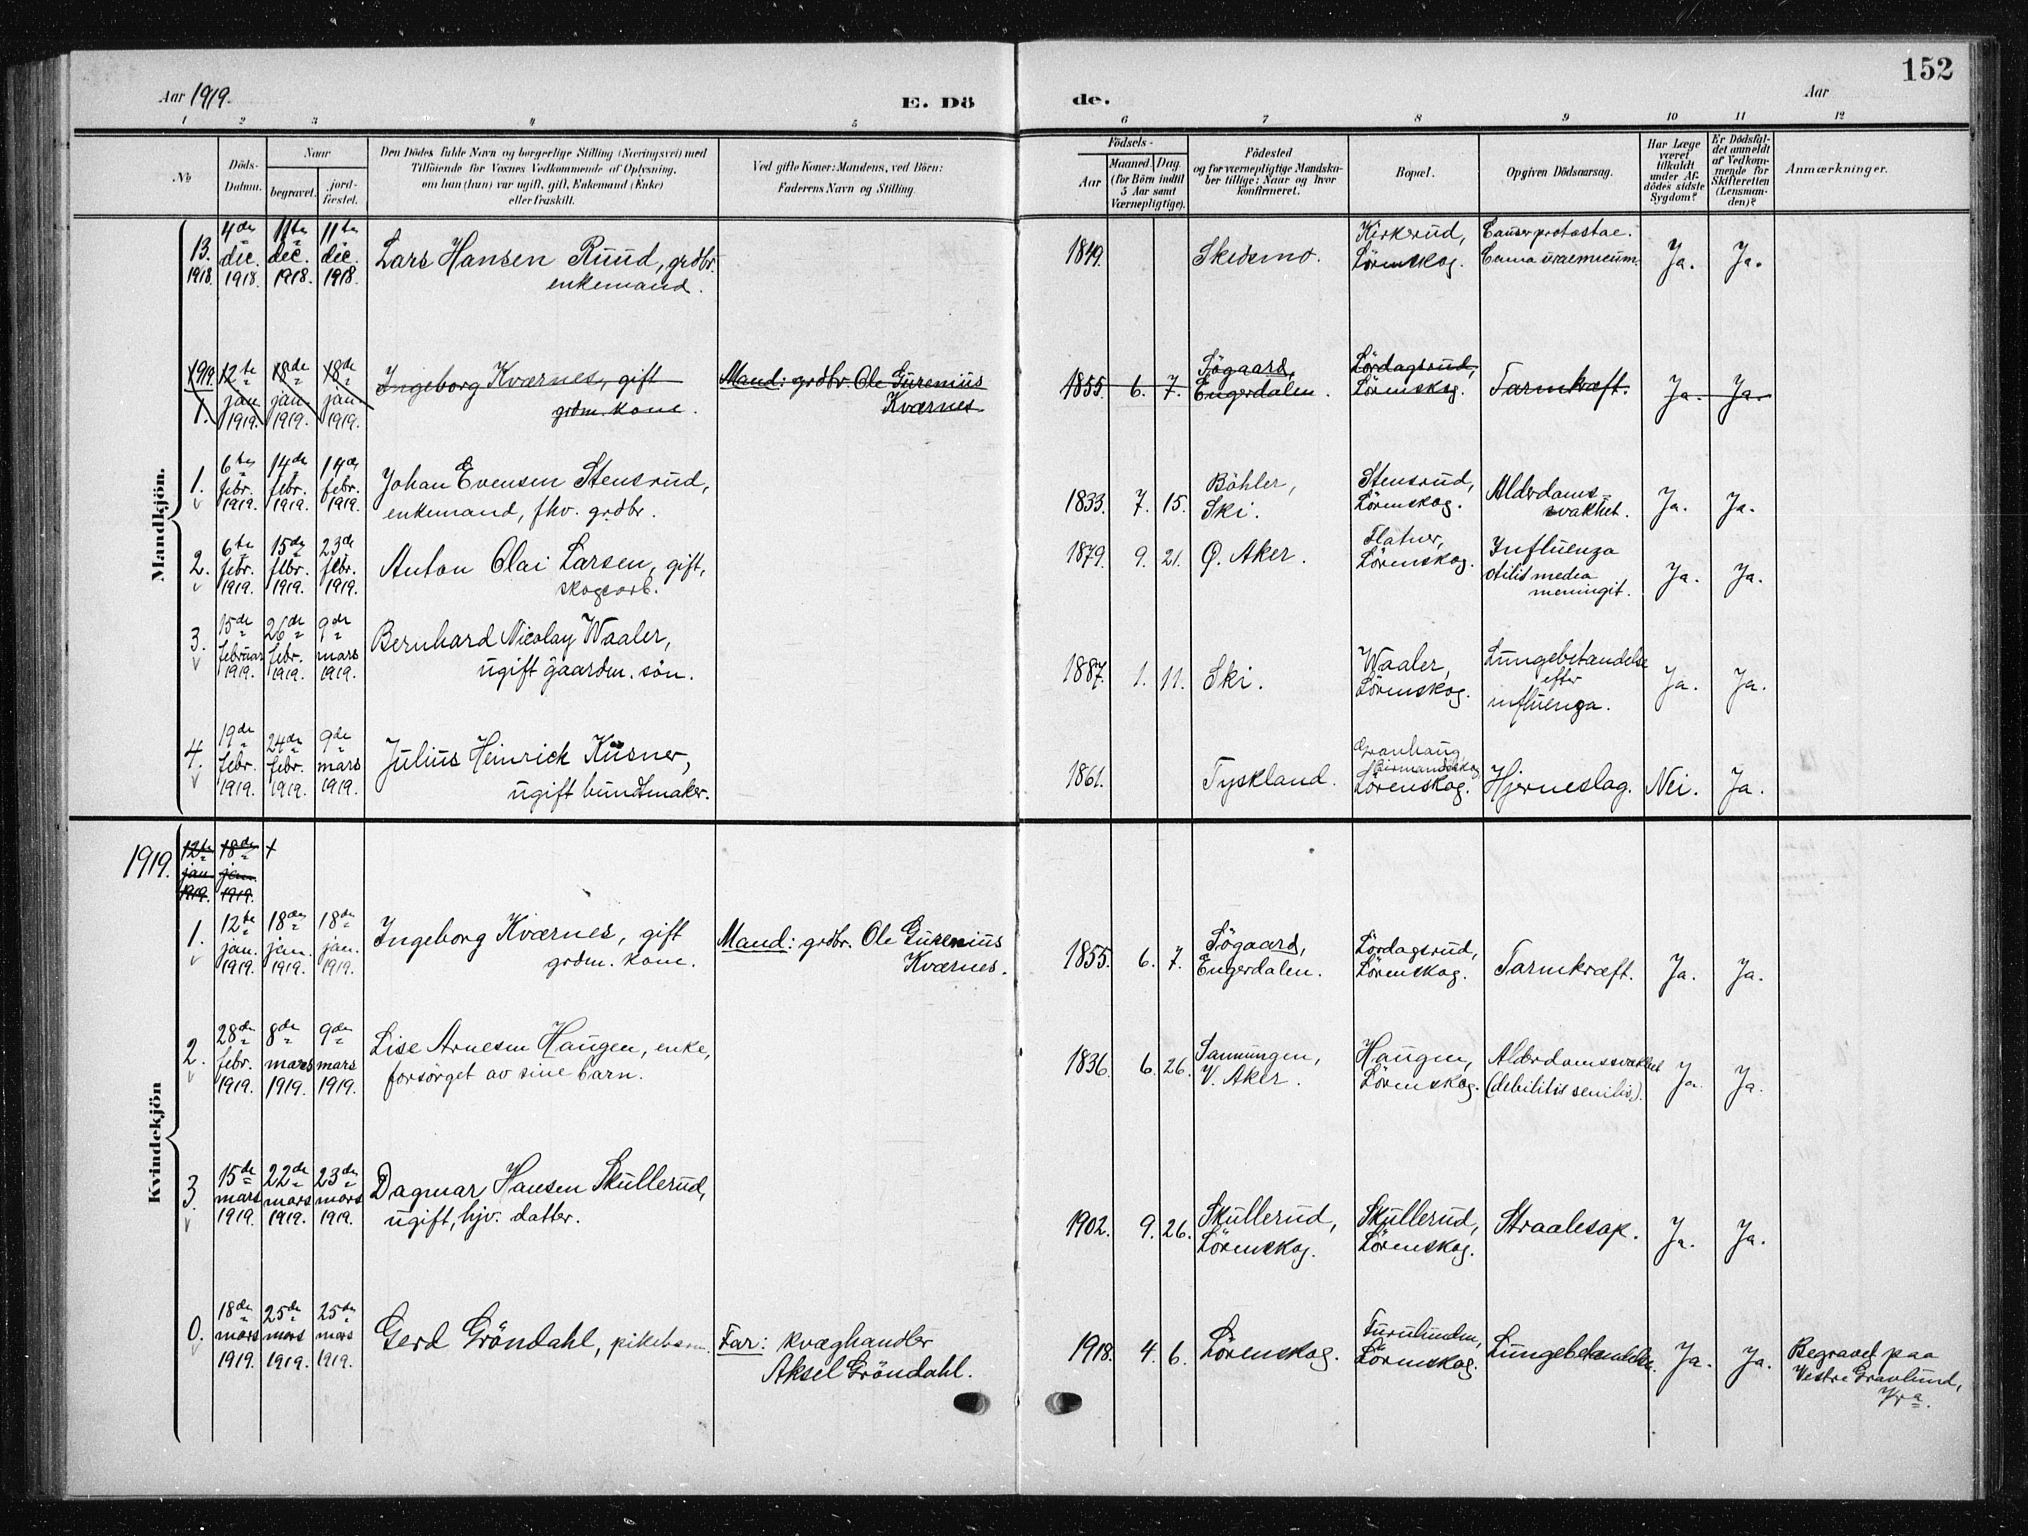 152
Aar 1919.
E. Dö
de.
Aar
1 2 3 4 5 6 7 8 9 10 11 12
No
Döds-
Datum.
Naar
begravet.
jord-
fæstet.
Den Dödes fulde Navn og borgerlige Stilling (Næringsvei) med
Tilföiende for Voxnes Vedkommende af Oplysning,
om han (hun) var ugift, gift, Enkemand (Enke)
eller fraskilt.
Ved gifte Koner: Mandens, ved Börn:
Faderens Navn og Stilling.
Födsels-
Aar
Maaned. Dag.
(for Börn indtil
5 Aar samt
Værnepligtige).
Födested
og for værnepligtige Mandska-
ber tillige: Naar og hvor
konfirmeret.
Bopæl.
Opgiven Dödsaarsag.
Har Læge
været
tilkaldt
under Af-
dödes sidste
Sygdom?
Er Dödsfal-
det anmeldt
af Vedkom-
mende for
Skifteretten
(Lensman-
den)?
Anmærkninger.
Mandkjön.
13. 4de 11te 11te
dec. dec. dec.
1918 1918. 1918. 1918.
Lars Hansen Ruud, grdbr.
enkemand.
1849. Skedsmo.
Kirkerud,
Lörenskog.
Cancer prostatae.
Coma uraemicum.
Ja. Ja.
1919. 12te 18de 18de
1. jan. jan. jan.
1919. 1919. 1919.
Ingeborg Kværnes, gift
grdm. kone.
Mand: grdbr. Ole Gurenius
Kværnes.
1855. 6. 7.
Sögaard,
Engerdalen.
Lördagsrud,
Lörenskog.
Tarmkræft.
Ja. Ja.
1. 6te 14de 14de
febr. febr. febr.
1919. 1919. 1919.
Johan Evensen Stensrud,
enkemand, fhv. grdbr.
1833. 7. 15.
Böhler,
Ski.
Stensrud,
Lörenskog.
Alderdoms-
svakhet.
Ja. Ja.
2. 6te 15de 23de
febr. febr. febr.
1919. 1919. 1919.
Anton Olai Larsen, gift,
skogsarb.
1879. 9. 21. Ø. Aker.
Flatner,
Lörenskog.
Influenza
otitis media
meningit.
Ja. Ja.
3. 15de 26de 9de
februar febr. mars
1919. 1919. 1919.
Bernhard Nicolay Waaler,
ugift gaardm. sön.
1887. 1. 11. Ski.
Waaler,
Lörenskog.
Lungebetændelse
efter
influenza.
Ja. Ja.
4. 19de 24de 9de
febr. febr. mars
1919. 1919. 1919.
Julius Heinrick Küsner,
ugift buntmaker.
1861. Tyskland.
Granhaug
Lörenskog.
Hjerneslag. Nei. Ja.
Kvindekjön
1919. 12te 18de
jan. jan.
1919. 1919.
1. 12te 18de 18de
jan. jan. jan.
1919. 1919. 1919.
Ingeborg Kværnes, gift
grdm. kone.
Mand: grdbr. Ole Gurenius
Kværnes.
1855. 6. 7.
Sögaard,
Engerdalen.
Lördagsrud,
Lörenskog.
Tarmkræft.
Ja. Ja.
2. 28de 8de 9de
febr. mars mars
1919. 1919. 1919.
Lise Arnesen Haugen, enke,
forsörget av sine barn.
1836. 6. 26.
Sannungen,
V. Aker.
Haugen,
Lörenskog.
Alderdomssvakhet
(debilitis senilis).
Ja. Ja.
3. 15de 22de 23de
mars mars mars
1919. 1919. 1919.
Dagmar Hansen Skullerud,
ugift, hjv. datter.
1902. 9. 26.
Skullerud,
Lörenskog.
Skullerud,
Lörenskog.
Straalesop.
Ja. Ja.
0. 18de 25de 25de
mars mars mars
1919. 1919. 1919.
Gerd Gröndahl, pikebarn.
Far: kvæghandler
Aksel Gröndahl.
1918. 4. 6. Lörenskog.
Furulunden,
Lörenskog.
Lungebetændelse.
Ja. Ja.
Begravet paa
Vestre Gravlund,
Kra.